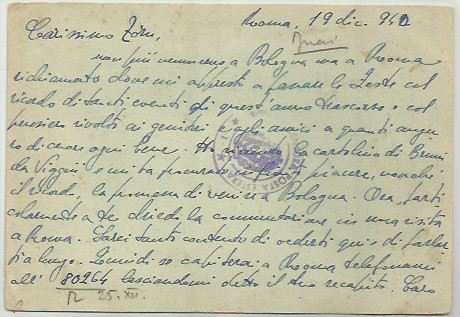 Roma, 19 dic. 942
Carissimo
non più nemmeno a Bologna ma a Roma
richiamato dove mi appresto a passare le Feste col
ricordo di tanti eventi di quest'anno trascorso e col
pensiero rivolti ai genitori e agli amici a quanti augu
ro di cuore ogni bene. Ho ricevuto la cartolina di
da e mi ha procurato piacere, nonché
il la promessa di venire a Bologna. Ora, parti
colarmente a te chiedo la commutazione in una visita
a Roma. Sarei tanto contento di vederti qui e di farla
più lunga. Quindi se capiterai a Roma telefonami
all' 80264 lasciandomi detto il tuo recapito. Caro
R 25. XII.
POSTA ESTERA